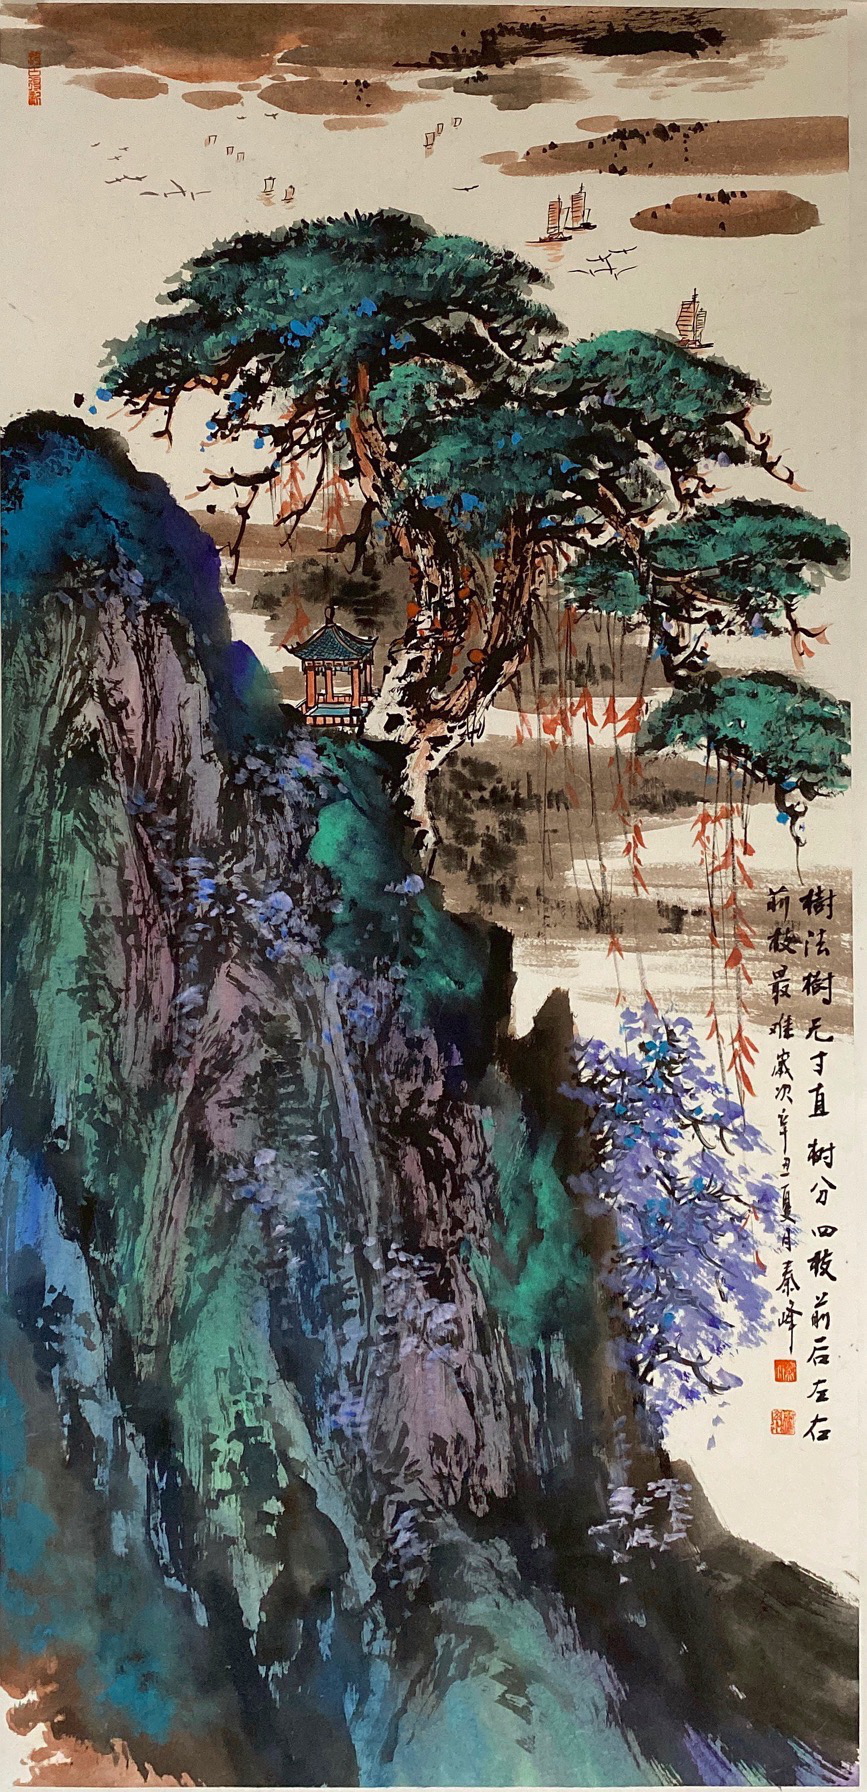 樹法樹无寸直樹分四枝前后左右
前枝最难歲次辛丑夏月秦峰